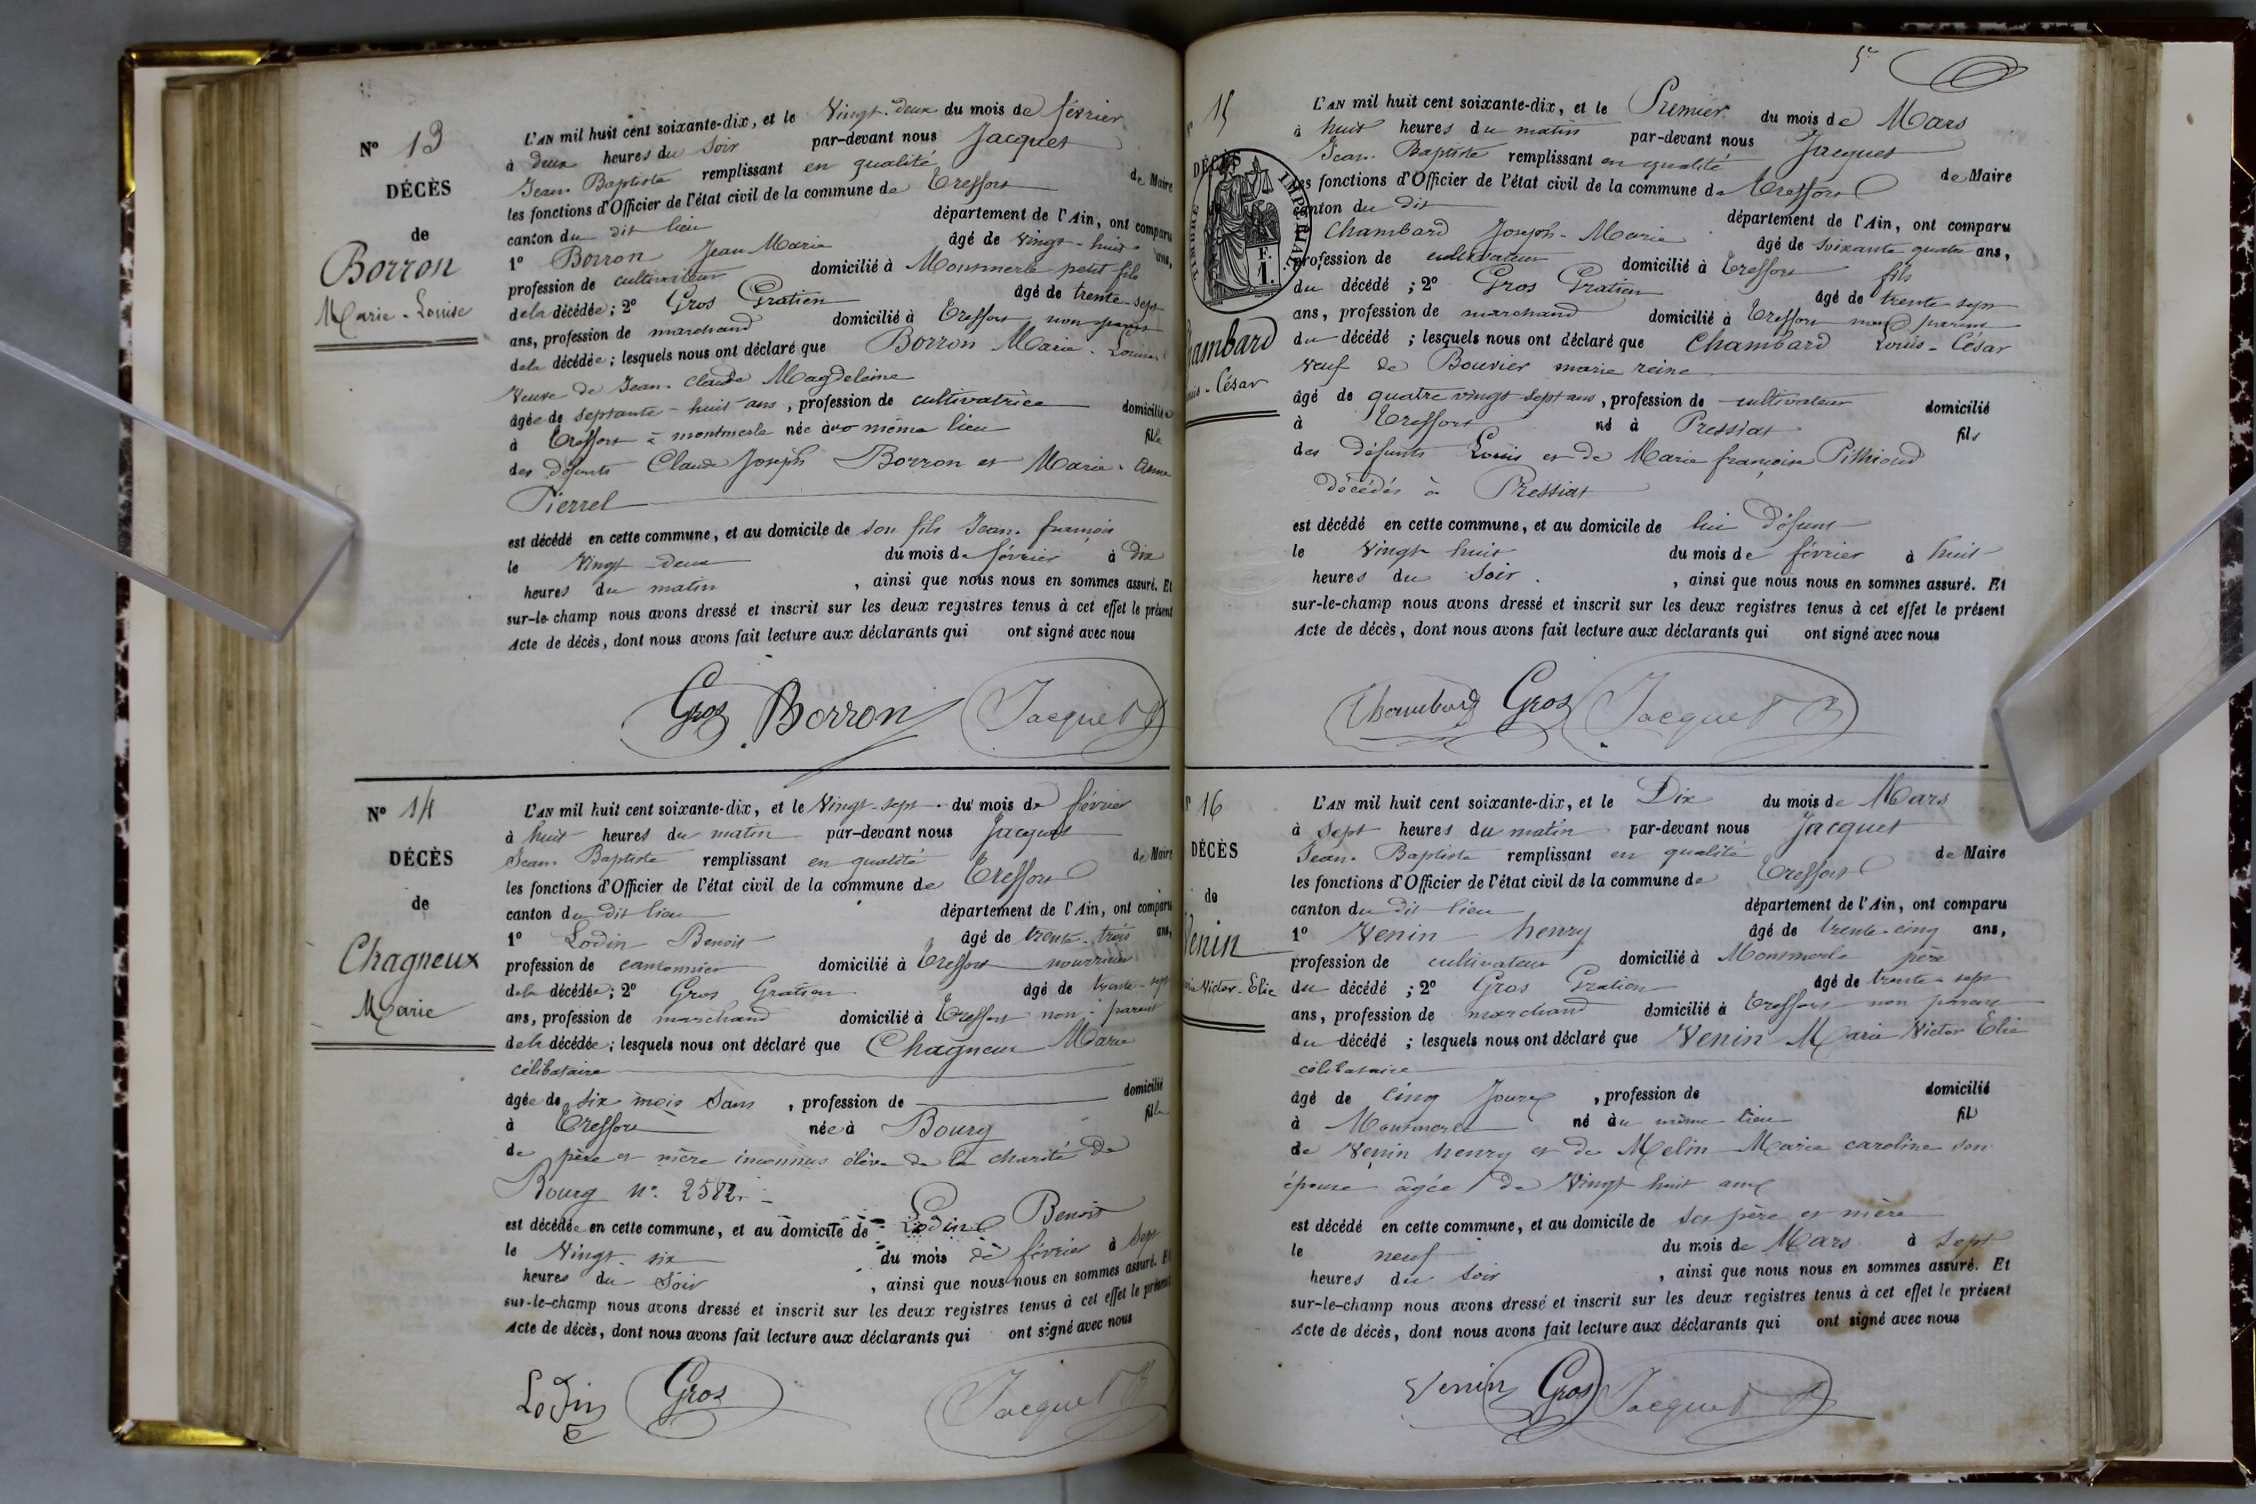 N° 13
DÉCÈS
de
Borron
Marie-Louise
L'AN mil huit cent soixante-dix, et le Vingt-deux du mois de février
à deux heures du soir par-devant nous Jacquet
Jean-Baptiste remplissant en qualité de Maire
les fonctions d'Officier de l'état civil de la commune de Treffort
canton du dit lieu département de l'Ain, ont comparu
1° Borron Jean Marie âgé de vingt-huit ans,
profession de cultivateur domicilié à Montmerle petit fils
de la décédée ; 2° Gros Gratien âgé de trente-sept
ans, profession de marchand domicilié à Treffort non parent
de la décédée ; lesquels nous ont déclaré que Borron Marie-Louise
Veuve de Jean-Claude Magdeleine
âgée de septante-huit ans, profession de cultivatrice domiciliée
à Treffort à montmerle née au même lieu fille
des défunts Claude Joseph Borron et Marie-Anne
Pierrel
est décédé en cette commune, et au domicile de son fils Jean-françois
le Vingt-deux du mois de février à dix
heures du matin, ainsi que nous nous en sommes assuré. Et
sur-le-champ nous avons dressé et inscrit sur les deux registres tenus à cet effet le présent
Acte de décès, dont nous avons fait lecture aux déclarants qui ont signé avec nous
Gros Borron Jacquet
N° 14
DÉCÈS
de
Chagneux
Marie
L'AN mil huit cent soixante-dix, et le Vingt-sept du mois de février
à huit heures du matin par-devant nous Jacquet
Jean-Baptiste remplissant en qualité de Maire
les fonctions d'Officier de l'état civil de la commune de Treffort
canton du dit lieu département de l'Ain, ont comparu
1° Lodin Benoit âgé de trente-trois ans,
profession de cantonnier domicilié à Treffort nourricier
de la décédée ; 2° Gros Gratien âgé de trente-sept
ans, profession de marchand domicilié à Treffort non-parent
de la décédée ; lesquels nous ont déclaré que Chagneux Marie
célibataire
âgée de six mois sans, profession de domicilié
à Treffort née à Bourg fille
de père et mère inconnus élève de la charité de
Bourg n° 2582
est décédée en cette commune, et au domicile de Lodin Benoit
le Vingt-six du mois de février à sept
heures du soir, ainsi que nous nous en sommes assuré. Et
sur-le-champ nous avons dressé et inscrit sur les deux registres tenus à cet effet le présent
Acte de décès, dont nous avons fait lecture aux déclarants qui ont signé avec nous
Lodin Gros Jacquet
5
15
DÉCÈS
TIMBRE IMPÉRIAL
F.
1.
Chambard
Louis-César
L'AN mil huit cent soixante-dix, et le Premier du mois de Mars
à huit heures du matin par-devant nous Jacquet
Jean-Baptiste remplissant en qualité de Maire
les fonctions d'Officier de l'état civil de la commune de Treffort
canton du dit département de l'Ain, ont comparu
Chambard Joseph-Marie âgé de soixante quatre ans,
profession de cultivateur domicilié à Treffort fils
du décédé ; 2° Gros Gratien âgé de trente-sept
ans, profession de marchand domicilié à Treffort non parent
du décédé ; lesquels nous ont déclaré que Chambard Louis-César
Veuf de Bouvier marie reine
âgé de quatre vingt-sept ans, profession de cultivateur domicilié
à Treffort né à Pressiat fils
des défunts Louis et de Marie françoise Pithioud
décédés à Pressiat
est décédé en cette commune, et au domicile de lui défunt
le Vingt huit du mois de février à huit
heures du soir, ainsi que nous nous en sommes assuré. Et
sur-le-champ nous avons dressé et inscrit sur les deux registres tenus à cet effet le présent
Acte de décès, dont nous avons fait lecture aux déclarants qui ont signé avec nous
Chambard Gros Jacquet
16
DÉCÈS
de
Venin
Marie Victor-Elie
L'AN mil huit cent soixante-dix, et le Dix du mois de Mars
à sept heures du matin par-devant nous Jacquet
Jean-Baptiste remplissant en qualité de Maire
les fonctions d'Officier de l'état civil de la commune de Treffort
canton du dit lieu département de l'Ain, ont comparu
1° Venin henry âgé de trente-cinq ans,
profession de cultivateur domicilié à Montmerle père
du décédé ; 2° Gros Gratien âgé de trente-sept
ans, profession de marchand domicilié à Treffort non parent
du décédé ; lesquels nous ont déclaré que Venin Marie Victor Elie
célibataire
âgé de cinq jours, profession de domicilié
à Montmerle né au même lieu fils
de Venin henry et de Melin Marie caroline son
épouse âgée de Vingt huit ans
est décédé en cette commune, et au domicile de ses père et mère
le neuf du mois de Mars à sept
heures du soir, ainsi que nous nous en sommes assuré. Et
sur-le-champ nous avons dressé et inscrit sur les deux registres tenus à cet effet le présent
Acte de décès, dont nous avons fait lecture aux déclarants qui ont signé avec nous
Venin Gros Jacquet